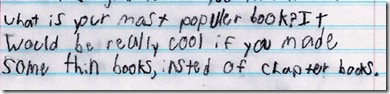 what is your most populler book?It
would be really cool if you made
some thin books, insted of chapter books.